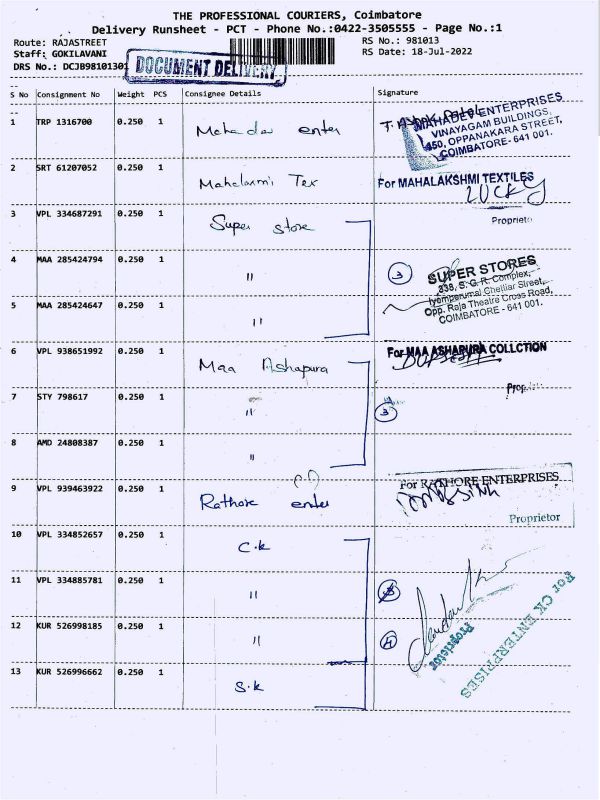 THE PROFESSIONAL COURIERS, Coimbatore
Delivery Runsheet - PCT - Phone No.:0422-3505555 - Page No.:1
Route: RAJASTREET
RS No.: 981013
Staff: GOKILAVANI
RS Date: 18-Jul-2022
DRS No.: DCJB98101301
DOCUMENT DELIVERY
S No Consignment No Weight PCS Consignee Details Signature
1 TRP 1316700 0.250 1 Mahadev enter
MAHADEV ENTERPRISES
VINAYAGAM BUILDINGS,
450, OPPANAKARA STREET,
COIMBATORE - 641 001.
2 SRT 61207052 0.250 1 Mahalaxmi Tex
For MAHALAKSHMI TEXTILES
LUCKY
Proprieto
3 VPL 334687291 0.250 1 Super store
4 MAA 285424794 0.250 1 〃 3
SUPER STORES
338, S. G. R. Complex,
Iyemperumal Chettiar Street,
Opp. Raja Theatre Cross Road,
COIMBATORE - 641 001.
5 MAA 285424647 0.250 1 〃
6 VPL 938651992 0.250 1 Maa Ashapura
For MAA ASHAPURA COLLCTION
Prop
7 STY 798617 0.250 1 〃 3
8 AMD 24808387 0.250 1 〃
9 VPL 939463922 0.250 1 Rathore enter
For RATHORE ENTERPRISES
Proprietor
10 VPL 334852657 0.250 1 C.K
11 VPL 334885781 0.250 1 〃
12 KUR 526998185 0.250 1 〃 4
For CK ENTERPRISES
Proprietor
13 KUR 526996662 0.250 1 S.K